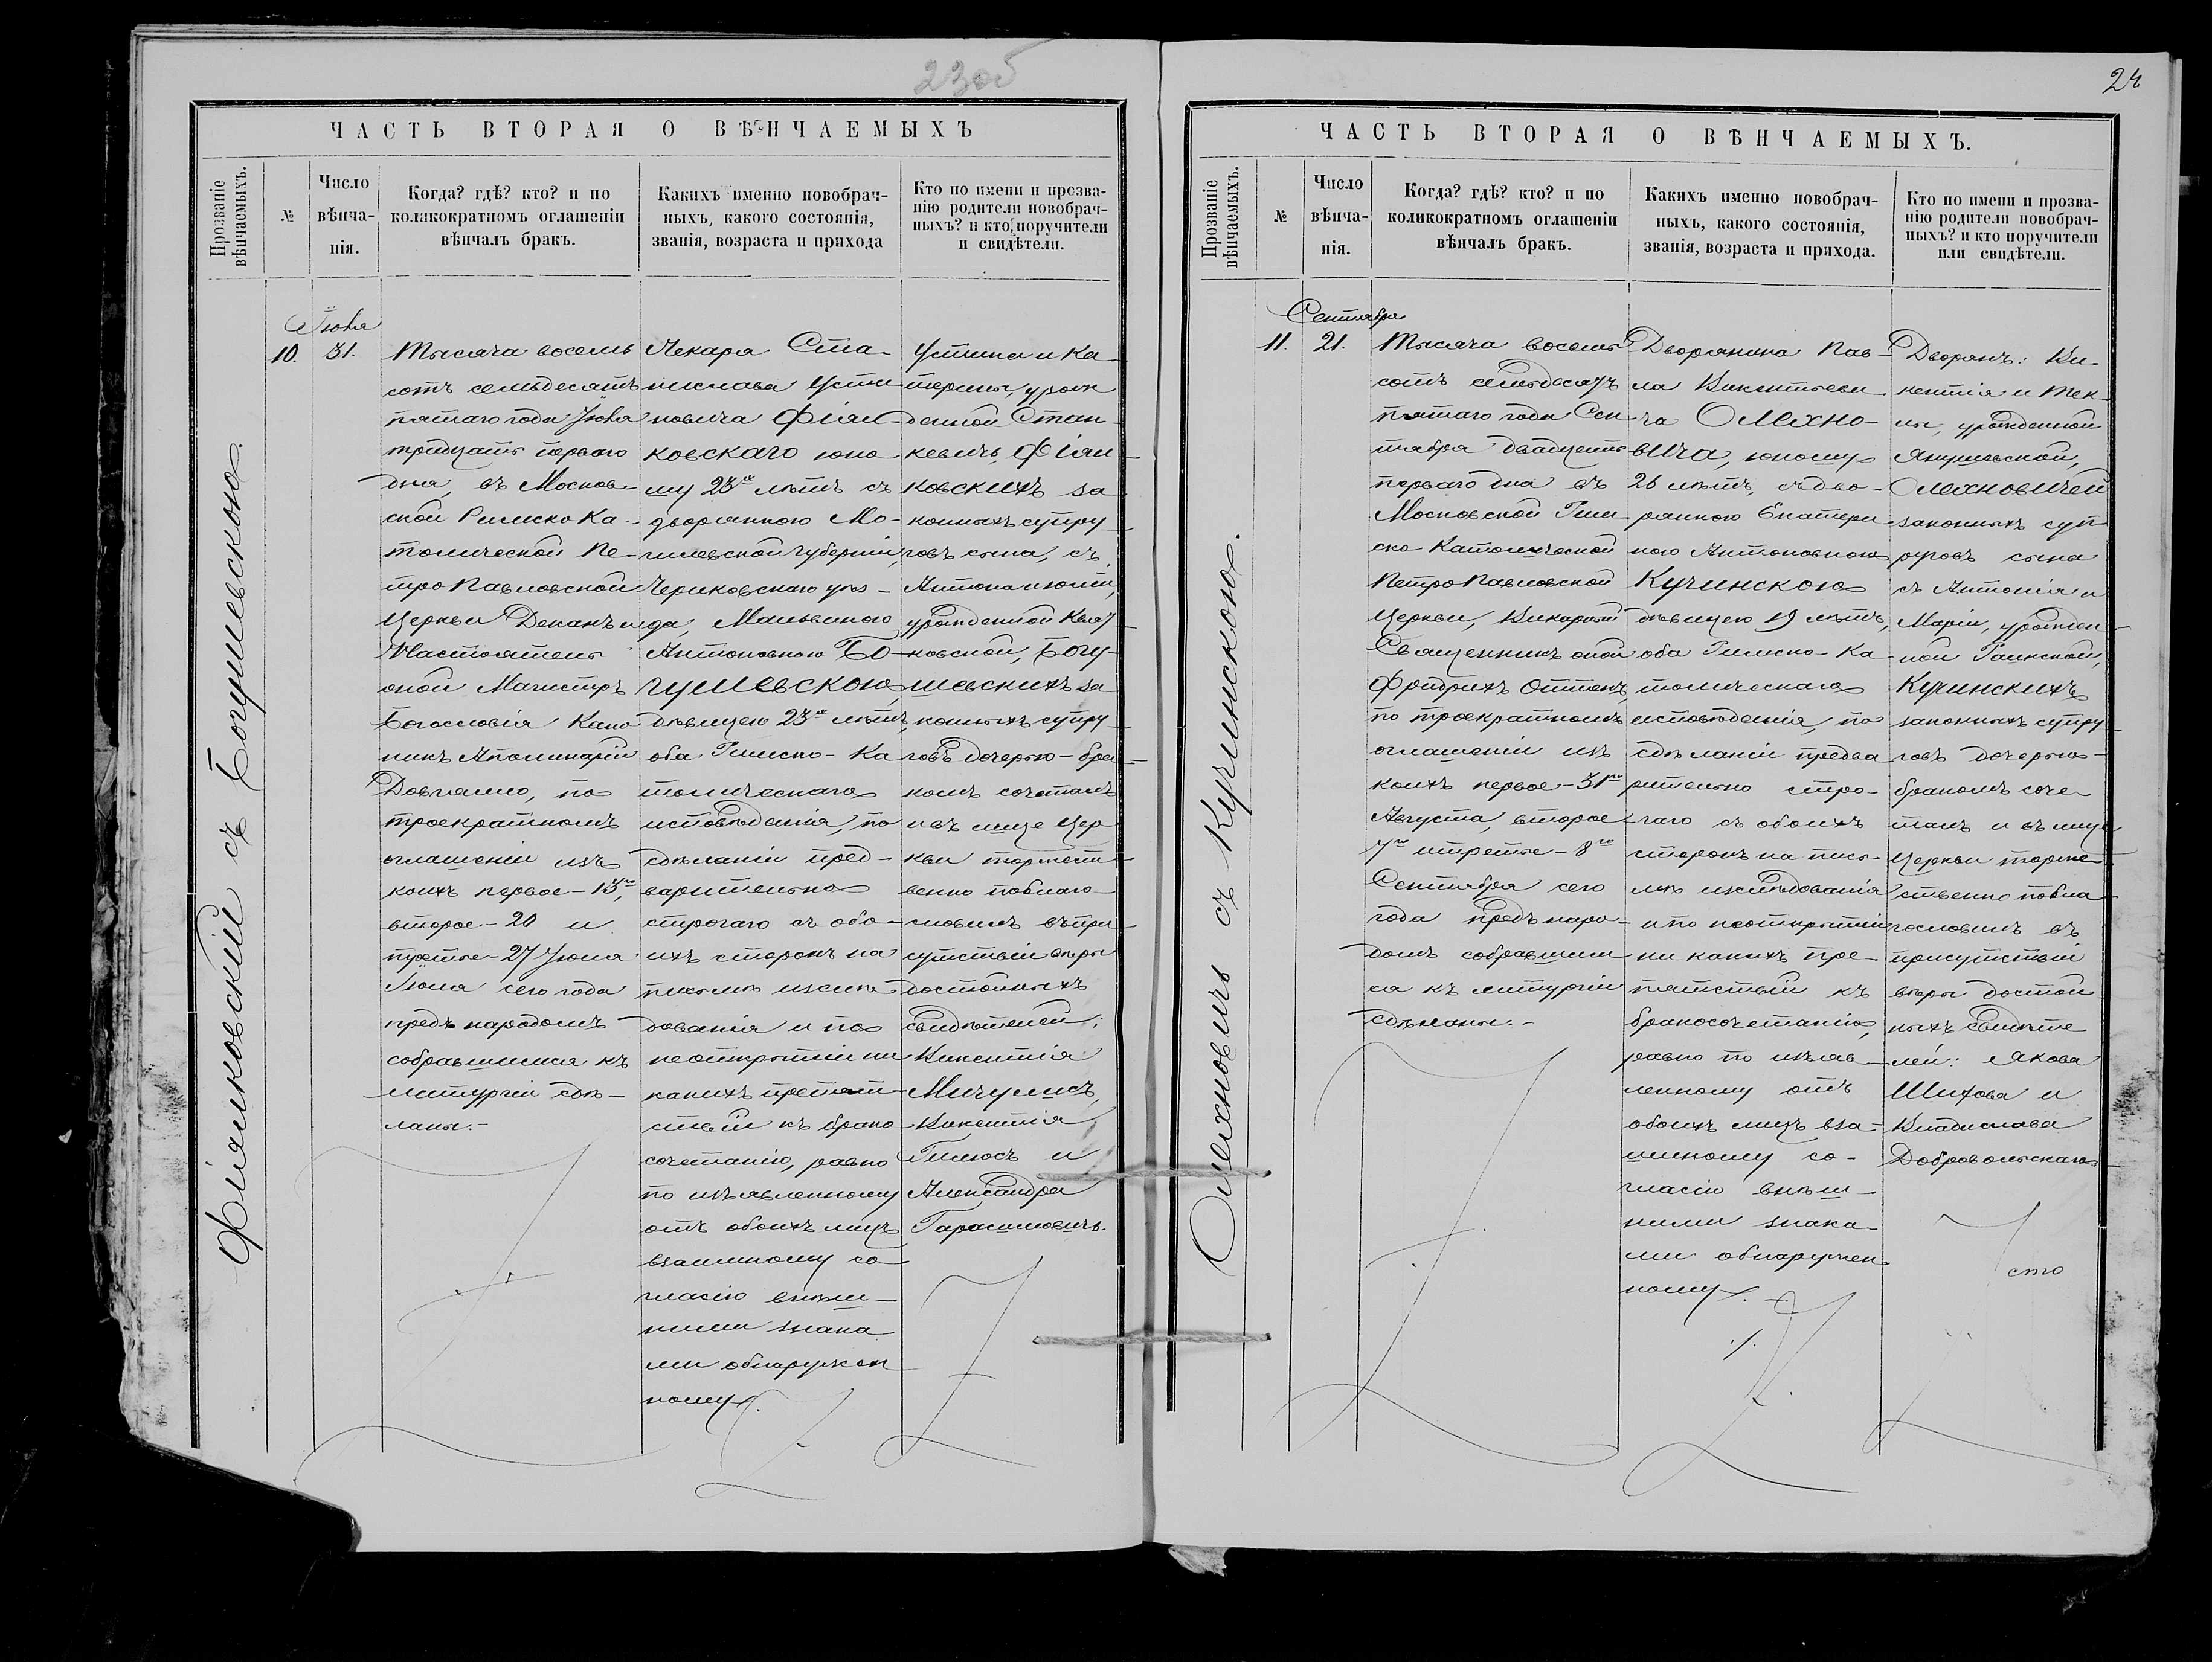 23об
ЧАСТЬ ВТОРАЯ О ВѢНЧАЕМЫХЪ
Прозваніе
вѣнчаемыхъ.
№
Число
вѣнча-
нія.
Когда? гдѣ? кто? и по
коликократномъ оглашеніи
вѣнчалъ бракъ.
Какихъ именно новобрач-
ныхъ, какого состоянія,
званія, возраста и прихода
Кто по имени и прозва-
нію родители новобрач-
ныхъ? и кто поручители
и свидѣтели.
Фіялковскій съ Богушевскою.
Іюля
10.
31.
Тысяча восемь
сотъ семьдесятъ
пятаго года Іюля
тридцать перваго
дня, въ Москов-
ской Римско Ка-
толической Пе-
тро Павловской
Церкви Деканъ и
Настоятель
оной Магистръ
Богословія Кано-
никъ Аполинарій
Довгялло, по
троекратномъ
оглашеніи изъ
коихъ первое - 13го,
второе - 20 и
третье - 27 Іюля
Іюля сего года
предъ народомъ
собравшимся къ
литургіи сдѣ-
ланы:-
Лекаря Ста-
нислава Усти
новича Фіял-
ковскаго юно
шу 23хъ лѣтъ съ
дворянкою Мо-
гилевской губерніи,
Чериковскаго уѣз-
да, Мальвиною
Антоновною Бо-
гушевскою,
дѣвицею 23хъ лѣтъ,
оба Римско-Ка
толическаго
исповѣданія, по
сдѣланіи пред-
варительно
строгаго съ обо-
ихъ сторонъ на
письмѣ изслѣ-
дованія и по
неоткрытіи ни
какихъ препят-
ствій къ брако
сочетанію, равно
по изъявленному
отъ обоихъ лицъ
взаимному со
гласію внѣш-
ними знака
ми обнаружен
ному.
Устина и Ка-
терины, урож
денной Стан-
кевичъ, Фіял-
ковскихъ за
конныхъ супру
говъ сына, съ
Антона и Юліи,
урожденной
ковской, Богу-
шевскихъ за
конныхъ супру
говъ дочерью - бра-
комъ сочеталъ
и въ лицѣ Цер
кви торжест-
венно поблаго-
словилъ въ при
сутствіи вѣры
достойныхъ
свидѣтелей:
Викентія
Мичулисъ,
Викентія
и
Александра
Гарасимовичъ.
24
ЧАСТЬ ВТОРАЯ О ВѢНЧАЕМЫХЪ.
Прозваніе
вѣнчаемыхъ.
№
Число
вѣнча-
нія.
Когда? гдѣ? кто? и по
коликократномъ оглашеніи
вѣнчалъ бракъ.
Какихъ именно новобрач-
ныхъ, какого состоянія,
званія, возраста и прихода.
Кто по имени и прозва-
нію родители новобрач-
ныхъ? и кто поручители
или свидѣтели.
Олехновичъ съ Кучинскою.
Сентября
11.
21.
Тысяча восемь
сотъ семьдесятъ
пятаго года Сен-
тября двадцать
перваго дня въ
Московской Рим-
ско-Католической
Петро Павловской
Церкви, Викарный
Священникъ оной
Фридрихъ Оттенъ,
по троекратномъ
оглашеніи изъ
коихъ первое - 31го
Августа, второе
7го и третье - 8го
Сентября сего
года предъ наро-
домъ собравшим
ся къ литургіи
сдѣланы:-
Дворянина Пав-
ла Викентьеви-
ча Олехно-
вича, юношу
26 лѣтъ, съ дво-
рянкою Екатери-
ною Антоновною
Кучинскою
дѣвицею 19 лѣтъ,
оба Римско-Ка-
толическаго
исповѣданія, по
сдѣланіи предва
рительно стро-
гаго съ обоихъ
сторонъ на пись-
мѣ изслѣдованія
и по неоткрытіи
ни какихъ пре-
пятствій къ
бракосочетанію,
равно по изъяв-
ленному отъ
обоихъ лицъ вза-
имному со-
гласію внѣш-
ними знака-
ми обнаружен-
ному.
Дворянъ: Ви-
кентія и Тек-
лы, урожденной
Янушевской,
Олехновичей
законныхъ суп-
руговъ сына
съ Антонія и
Маріи, урожден-
ной
Кучинскихъ
законныхъ супру-
говъ дочерью-
бракомъ соче-
талъ и въ лицѣ
Церкви торже-
ственно побла-
гословилъ въ
присутствіи
вѣры достой
ныхъ свидѣте
лей: Якова
Шифова и
Владислава
Добровольскаго
сто